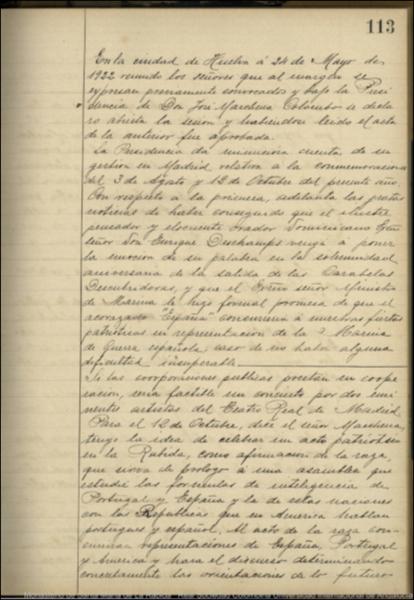 113
En la ciudad de Huelva á 24 de Mayo de
1922 reunido los señores que al margen se
expresan previamente convocados y bajo la Presi
dencia de Don José Marchena Colombo se decla
ró abierta la sesión y habiendose leido el acta
de la anterior fue aprobada.
La Presidencia da minuciosa cuenta de su
gestion en Madrid relativa a la conmemoracion
del 3 de Agosto y 12 de Octubre del presente año.
Con respecto a la primera, adelanta las gratas
noticias de haber conseguido que el ilustre
pensador y elocuente orador Dominicano Exmo
señor Don Enrique Deschamps venga a poner
la emocion de su palabra en la solemnidad
aniversaria de la salida de las Carabelas
Descubridoras, y que el Exmo señor Ministro
de Marina le hizo formal promesa de que el
acorazado "España" concurrirá á nuestras fiestas
patrioticas en representación de la Marina
de Guerra española, caso de no haber alguna
dificultad insuperable.
Si las corporaciones publicas prestan su coope
racion, sería factible un concierto por dos emi
nentes artistas del Teatro Real de Madrid.
Para el 12 de Octubre, dice el señor Marchena,
tengo la idea de celebrar un acto patriotico
en la Rabida, como afirmacion de la raza,
que sirva de prologo á una asamblea que
estudie las formulas de inteligencia de
Portugal y España y la de estas naciones
con las Republicas que en America hablan
portugues y español. Al acto de la raza con-
currirán representaciones de España, Portugal
y America y hará el discurso determinando
concretamente las orientaciones de lo futuro